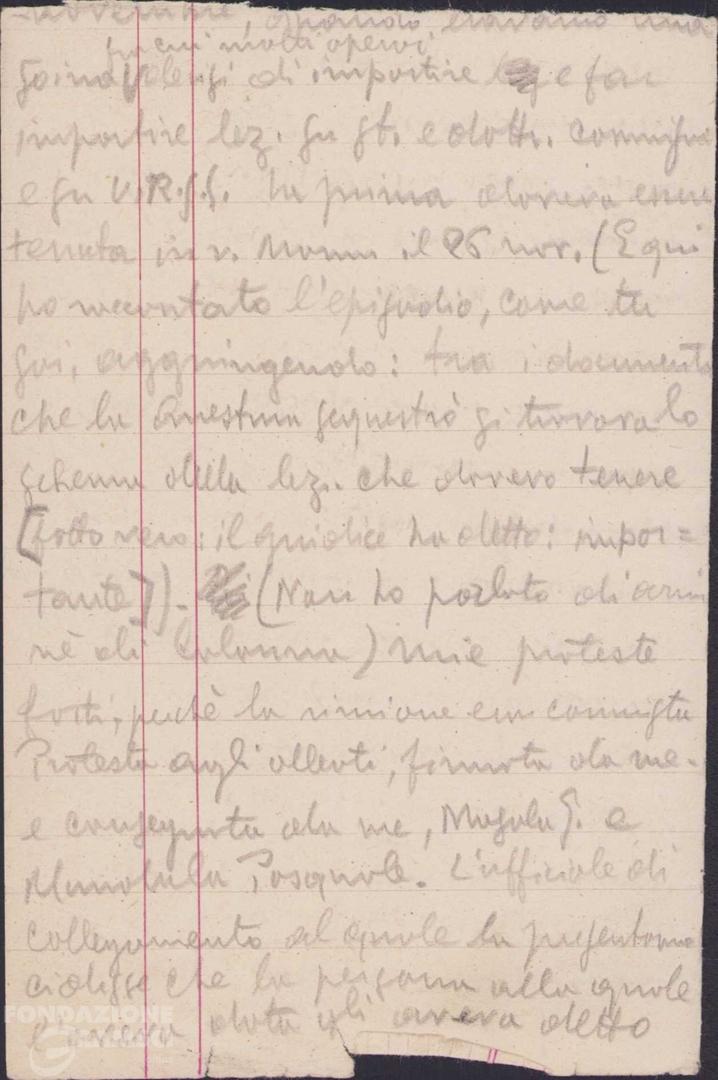 novembre, quando eravamo una
fra cui molti operai
di impartire e far
impartire lez. su st. e dottr. comunista
e su U.R.S.S. La prima doveva essere
tenuta in v. Monni il 26 nov. (E qui
ho raccontato l'episodio, come tu
sai, aggiungendo: tra i documenti
che la Questura sequestrò si trovava lo
schema della lez. che dovevo tenere
[sotto vero: il giudice ha detto: impor=
tante]). (Non ho parlato di armi
nè di Colonna) mie proteste
forti, perchè la riunione era comunista
Protesta agli alleati, firmata da me
e consegnata da me, E. e
Pasquale. L'ufficiale di
collegamento al quale la presentammo
ci disse che la persona alla quale
l'aveva data gli aveva detto
FONDAZIONE